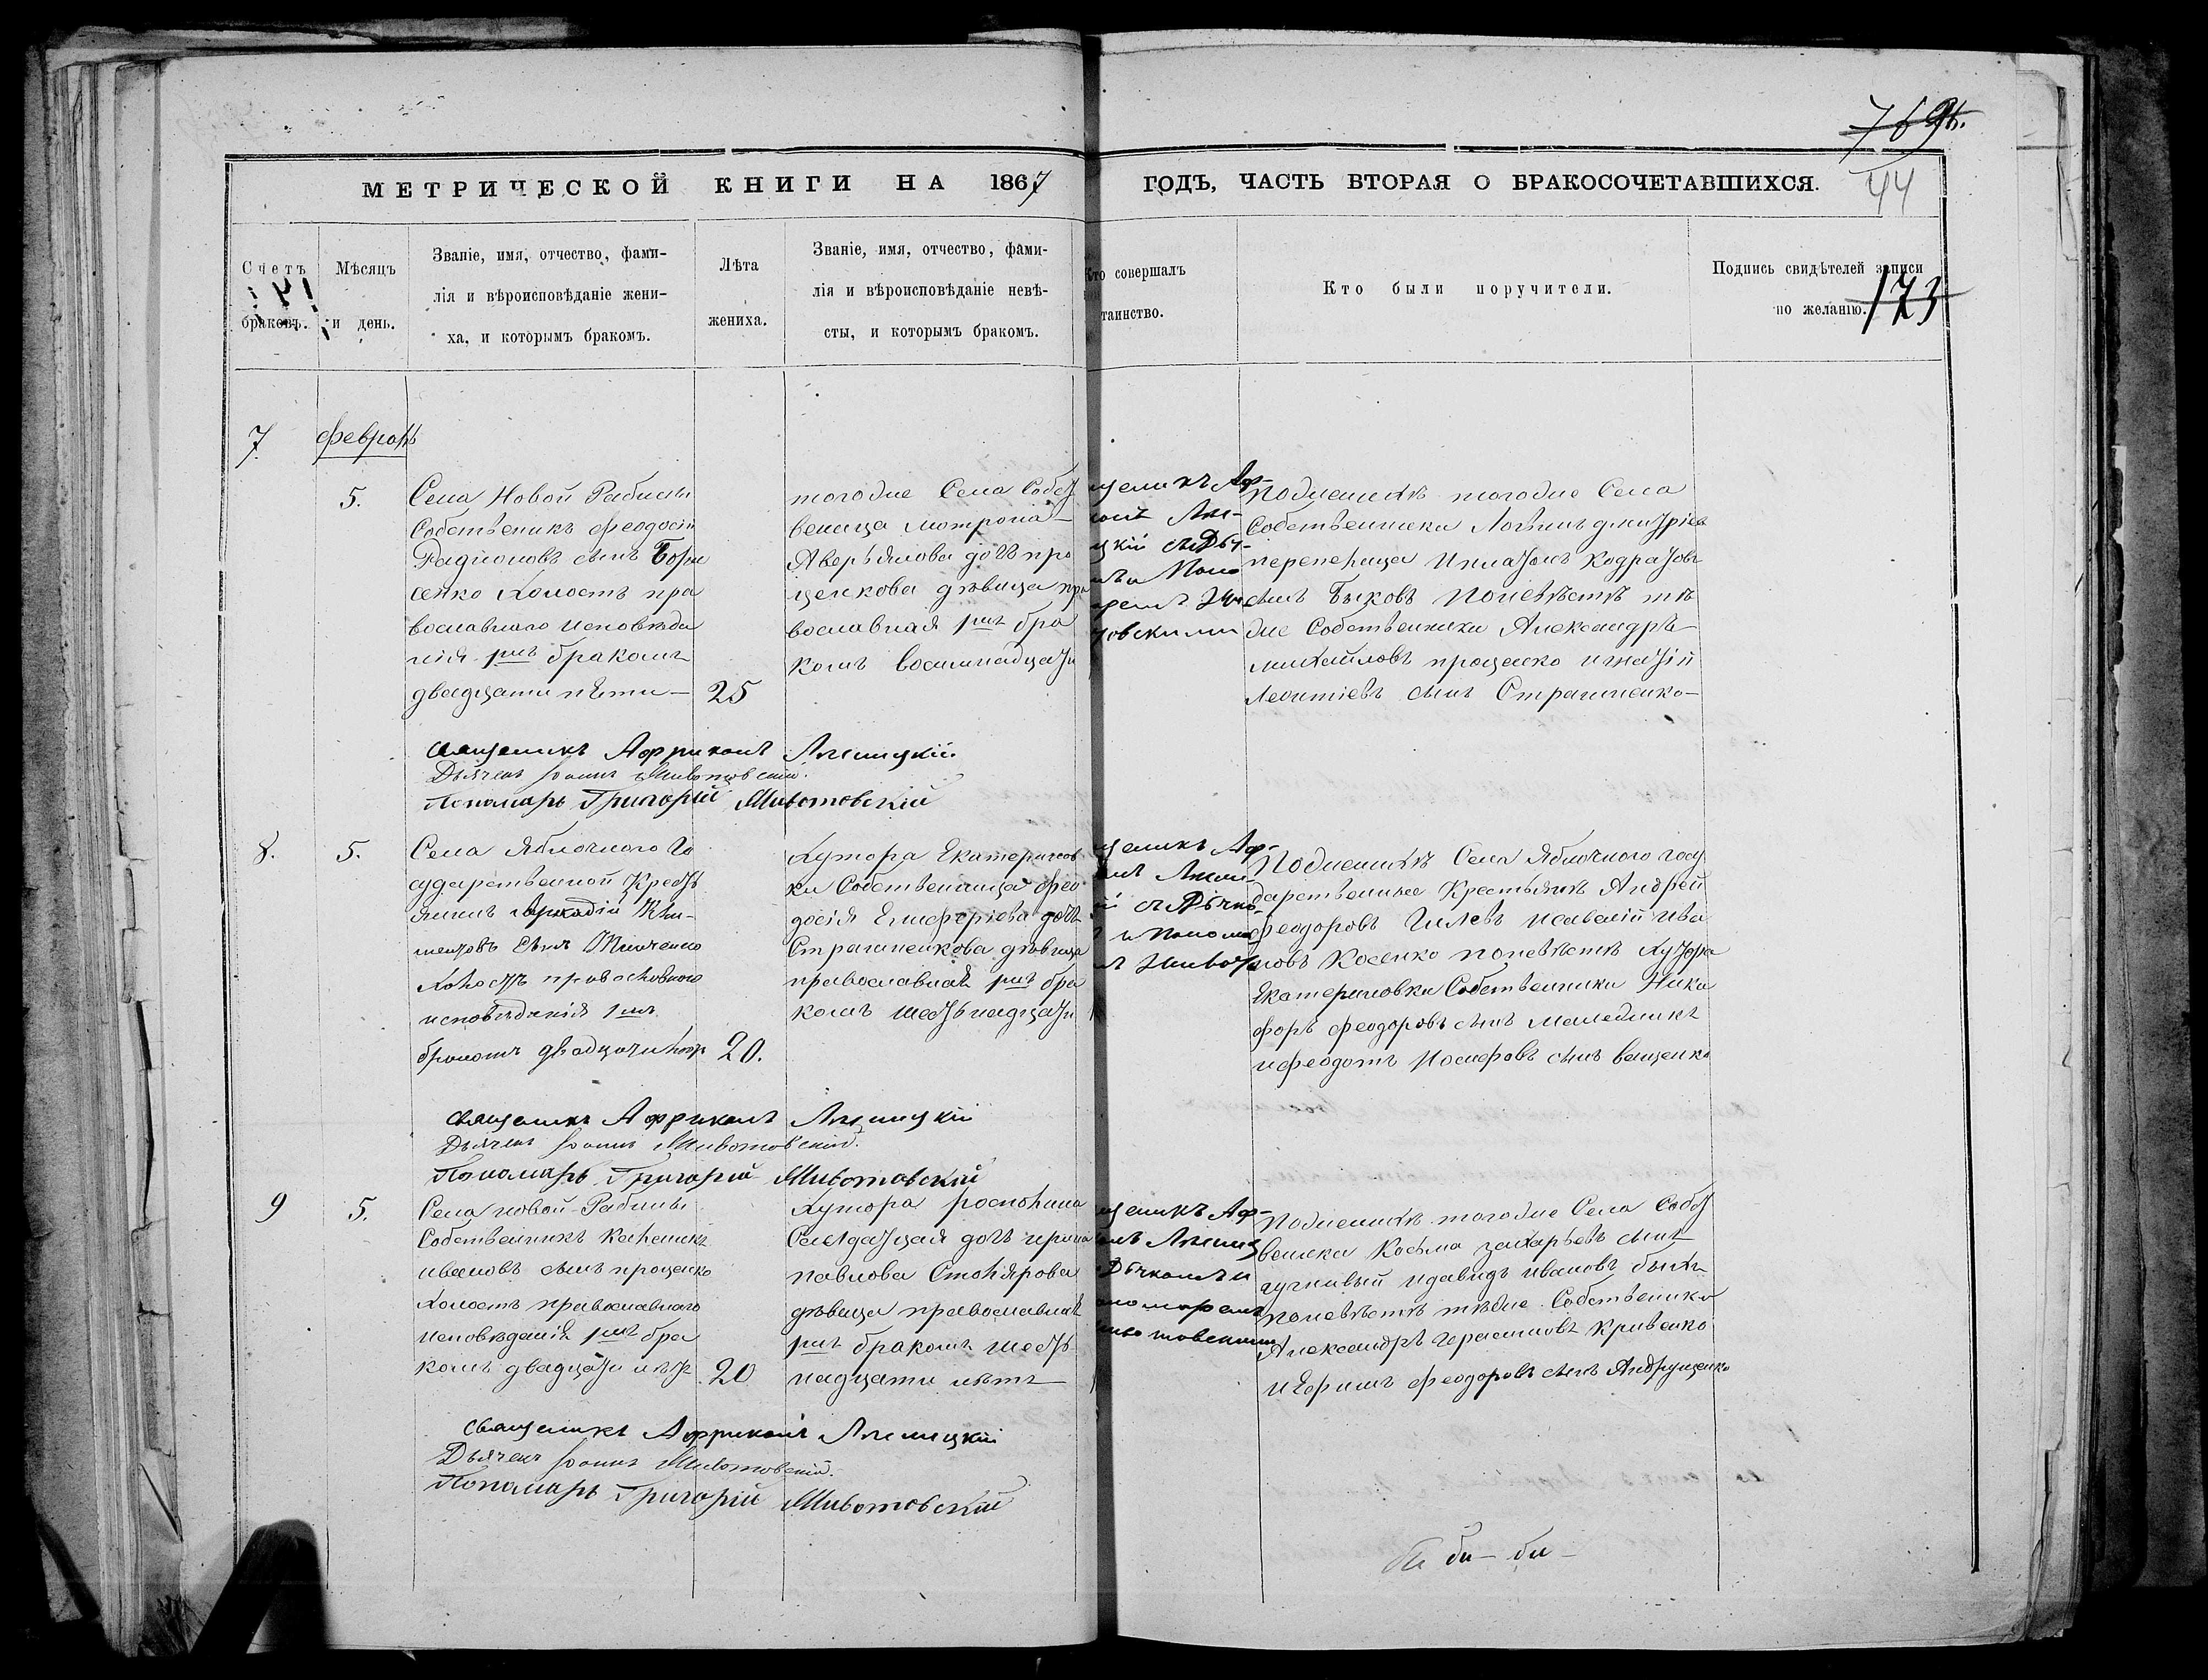 МЕТРИЧЕСКОЙ КНИГИ НА 1867 ГОДЪ, ЧАСТЬ ВТОРАЯ О БРАКОСОЧЕТАВШИХСЯ.
44
173
Счетъ браковъ.
Мѣсяцъ и день.
Званіе, имя, отчество, фами-
лія и вѣроисповѣданіе жени-
ха, и которымъ бракомъ.
Лѣта
жениха.
Званіе, имя, отчество, фами-
лія и вѣроисповѣданіе невѣ-
сты, и которымъ бракомъ.
Кто совершалъ
таинство.
Кто были поручители.
Подпись свидѣтелей записи
по желанію.
7
февраль
5.
Села Новой Рабины
Собственикъ Феодосій
Радионовъ сынъ Бори
сенко холостъ пра
вославнаго исповѣда
нія рмъ бракомъ
двадцати пяти
25
тогоже Села Собст
веница Мотрона
Аверьянова дочь про
ценкова дѣвица пра
вославная рмъ бра
комъ восимнадцати
щеникъ Аф-
цкій съ Дья-
товскими
Поженихѣ тогоже Села
Собственники Логвинъ дмитріев
перепелица Игнатъ Кодратовъ
сынъ Быковъ Поневѣстѣ тѣ
же Собственники Александръ
михайловъ проценко игнатій
Леонтіевъ сынъ Страшненко
священикъ Африканъ
Дьячекъ Іоаннъ Животовскій.
Пономарь Григорій Животовскій
8.
5.
Села Яблочного го
сударственой Кресть
янинъ Аркадій Кли-
ментовъ сынъ
холостъ православного
исповѣданія рмъ
бракомъ двадцати лѣтъ
20.
Хутора Екатеринов
ки Собственица Фео
досія Елиферіева дочь
Страшненкова дѣвица
православная рмъ бра
комъ шестьнадцати
щеникъ Аф-
и Понома
Поженихѣ Села Яблочного госу
дарственные Крестьяне Андрей
феодоровъ Гилевъ исавелій ива
новъ Косенко поневѣстѣ Хутора
Екатериновки Собственники Ники
форъ феодоровъ сынъ
ифеодотъ Иосифовъ сынъ ващенко
священикъ Африканъ
Дьячекъ Іоаннъ Животовскій.
Пономарь Григорій Животовскій
9
5.
Села новой Рабины
Собственникъ Каленикъ
ивановъ сынъ проценко
холостъ православнаго
исповѣданія рмъ бра
комъ двадцати лѣтъ
20
Хутора
Солдатская дочь ирина
павлова Столярова
дѣвица православная
рмъ бракомъ шесть
надцати лѣтъ
щеникъ Аф-
Дьячкомъ и
ономаремъ
товскими
Поженихѣ тогоже Села Собст
веники Косьма захарьевъ сынъ
идавидъ ивановъ быкъ
поневѣстѣ тѣже Собственики
Александръ Герасимовъ Кривенко
и Ефимъ феодоровъ сынъ Андрущенко
священикъ Африканъ
Дьячекъ Іоаннъ Животовскій.
Пономарь Григорій Животовскій